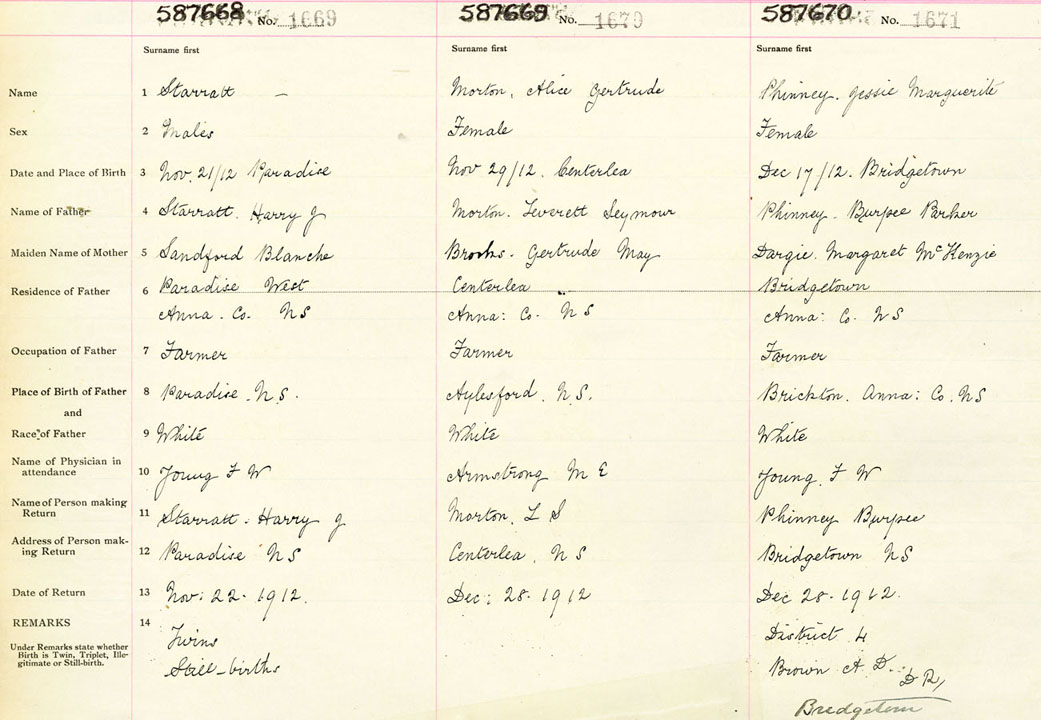 587668 No. 1669 587669 No. 1670 587670 No. 1671
Surname first Surname first Surname first
Name 1 Starratt — Morton, Alice Gertrude Phinney. Jessie Marguerite
Sex 2 Males Female Female
Date and Place of Birth 3 Nov. 21/12 Paradise Nov 29/12. Centerlea Dec 17/12. Bridgetown
Name of Father 4 Starratt. Harry J Morton. Leverett Seymour Phinney. Burpee Parker
Maiden Name of Mother 5 Sandford Blanche Brooks. Gertrude May Dargie. Margaret McKenzie
Residence of Father 6 Paradise West Centerlea Bridgetown
Anna. Co. NS Anna: Co. NS Anna: Co. NS
Occupation of Father 7 Farmer Farmer Farmer
Place of Birth of Father 8 Paradise. N.S. Aylesford. N.S. Brickton. Anna: Co. NS
and
Race of Father 9 White White White
Name of Physician in
attendance 10 Young F W Armstrong M E Young. F W
Name of Person making
Return 11 Starratt. Harry J Morton. L S Phinney Burpee
Address of Person mak-
ing Return 12 Paradise NS Centerlea. NS Bridgetown NS
Date of Return 13 Nov: 22. 1912. Dec: 28. 1912 Dec 28. 1912.
REMARKS 14
Under Remarks state whether
Birth is Twin, Triplet, Ille-
gitimate or Still-birth.
Twins District 4
Still-births Brown A D. D R,
Bridgetown